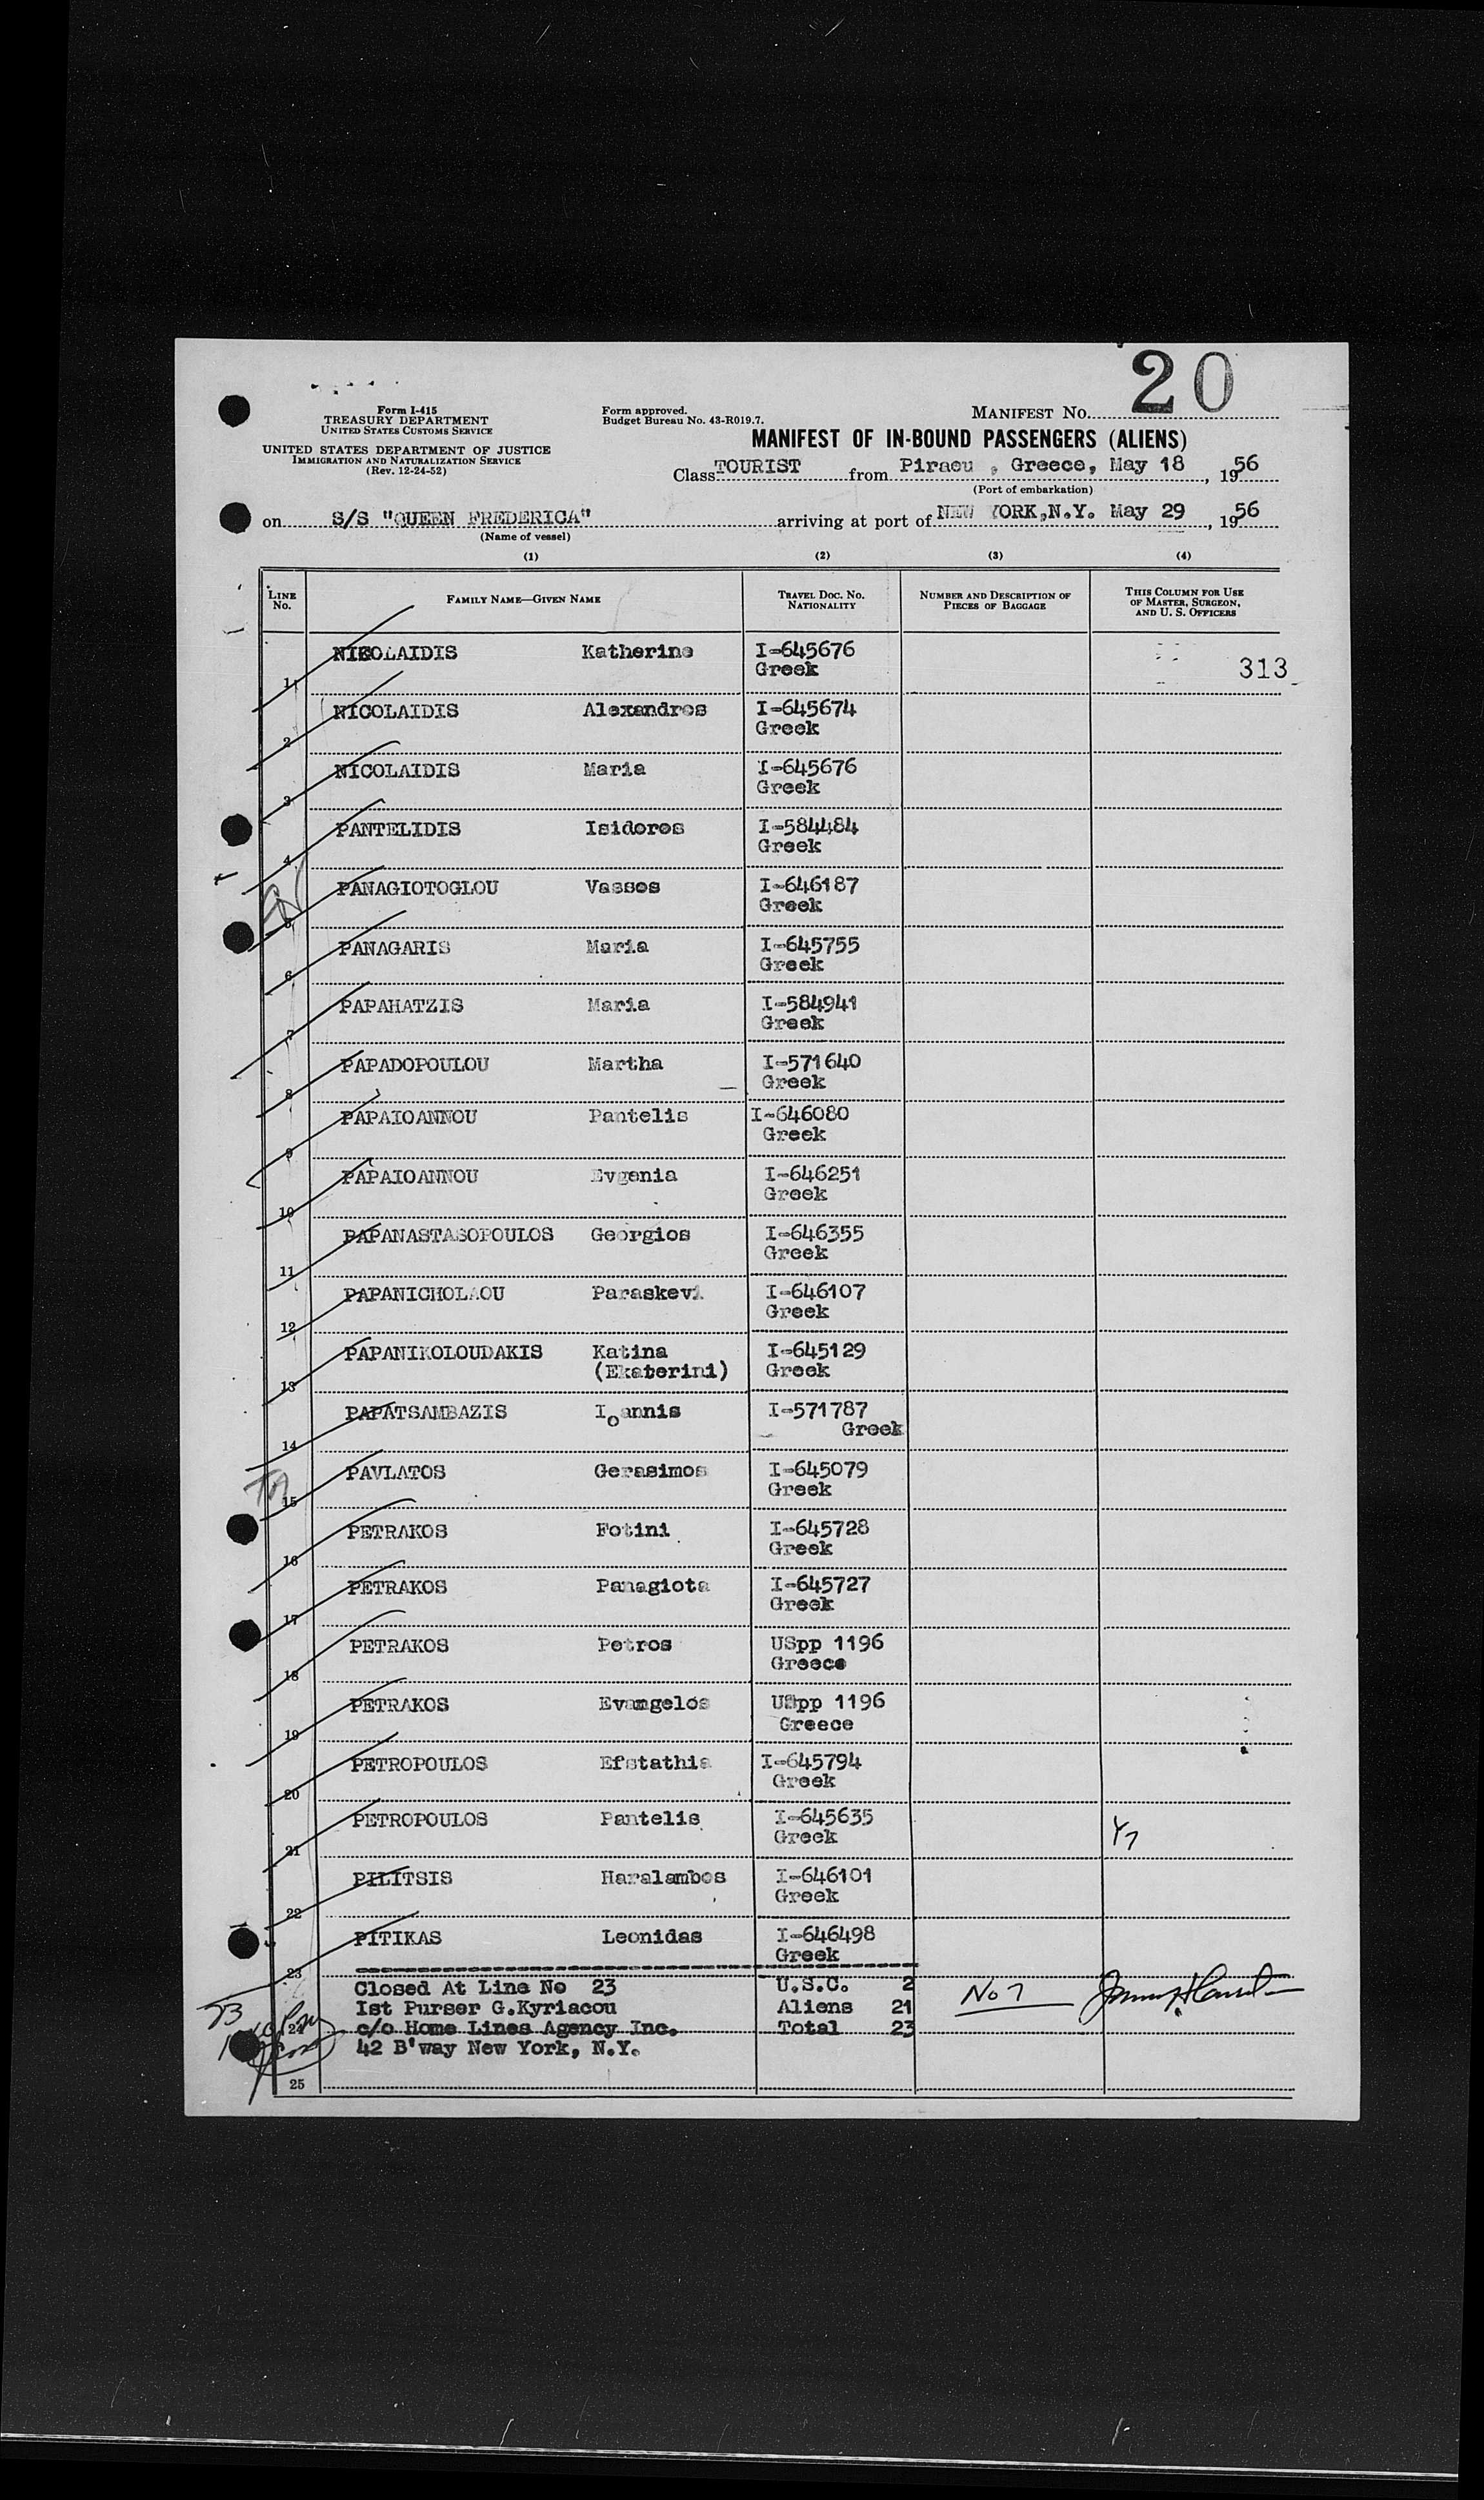 20
Form I-415
TREASURY DEPARTMENT
UNITED STATES CUSTOMS SERVICE
UNITED STATES DEPARTMENT OF JUSTICE
IMMIGRATION AND NATURALIZATION SERVICE
(Rev. 12-24-52)
Form approved.
Budget Bureau No. 43-R019.7.
MANIFEST No.
MANIFEST OF IN-BOUND PASSENGERS (ALIENS)
Class TOURIST from Piraeu , Greece, May 18, 1956
(Port of embarkation)
on S/S "QUEEN FREDERICA" arriving at port of NEW YORK,N.Y. May 29, 1956
(Name of vessel)
(1) (2) (3) (4)
LINE No. FAMILY NAME—GIVEN NAME TRAVEL DOC. No. NATIONALITY NUMBER AND DESCRIPTION OF PIECES OF BAGGAGE THIS COLUMN FOR USE OF MASTER, SURGEON, AND U. S. OFFICERS
1 NICOLAIDIS Katherine I-645676 Greek 313
2 NICOLAIDIS Alexandros I-645674 Greek
3 NICOLAIDIS Maria I-645676 Greek
4 PANTELIDIS Isidoros I-584484 Greek
5 PANAGIOTOGLOU Vassos I-646187 Greek
6 PANAGARIS Maria I-645755 Greek
7 PAPAHATZIS Maria I-584941 Greek
8 PAPADOPOULOU Martha I-571640 Greek
9 PAPAIOANNOU Pantelis I-646080 Greek
10 PAPAIOANNOU Evgenia I-646251 Greek
11 PAPANASTASOPOULOS Georgios I-646355 Greek
12 PAPANICHOLAOU Paraskevi I-646107 Greek
13 PAPANIKOLOUDAKIS Katina (Ekaterini) I-645129 Greek
14 PAPATSAMBAZIS Ioannis I-571787 Greek
15 PAVLATOS Gerasimos I-645079 Greek
16 PETRAKOS Fotini I-645728 Greek
17 PETRAKOS Panagiota I-645727 Greek
18 PETRAKOS Petros USpp 1196 Greece
19 PETRAKOS Evangelos USpp 1196 Greece
20 PETROPOULOS Efstathia I-645794 Greek
21 PETROPOULOS Pantelis I-645635 Greek
22 PILITSIS Haralambos I-646101 Greek
23 PITIKAS Leonidas I-646498 Greek
Closed At Line No 23 U.S.C. 2 No 7
Ist Purser G.Kyriacou Aliens 21
24 c/o Home Lines Agency Inc. Total 23
42 B'way New York, N.Y.
25
23